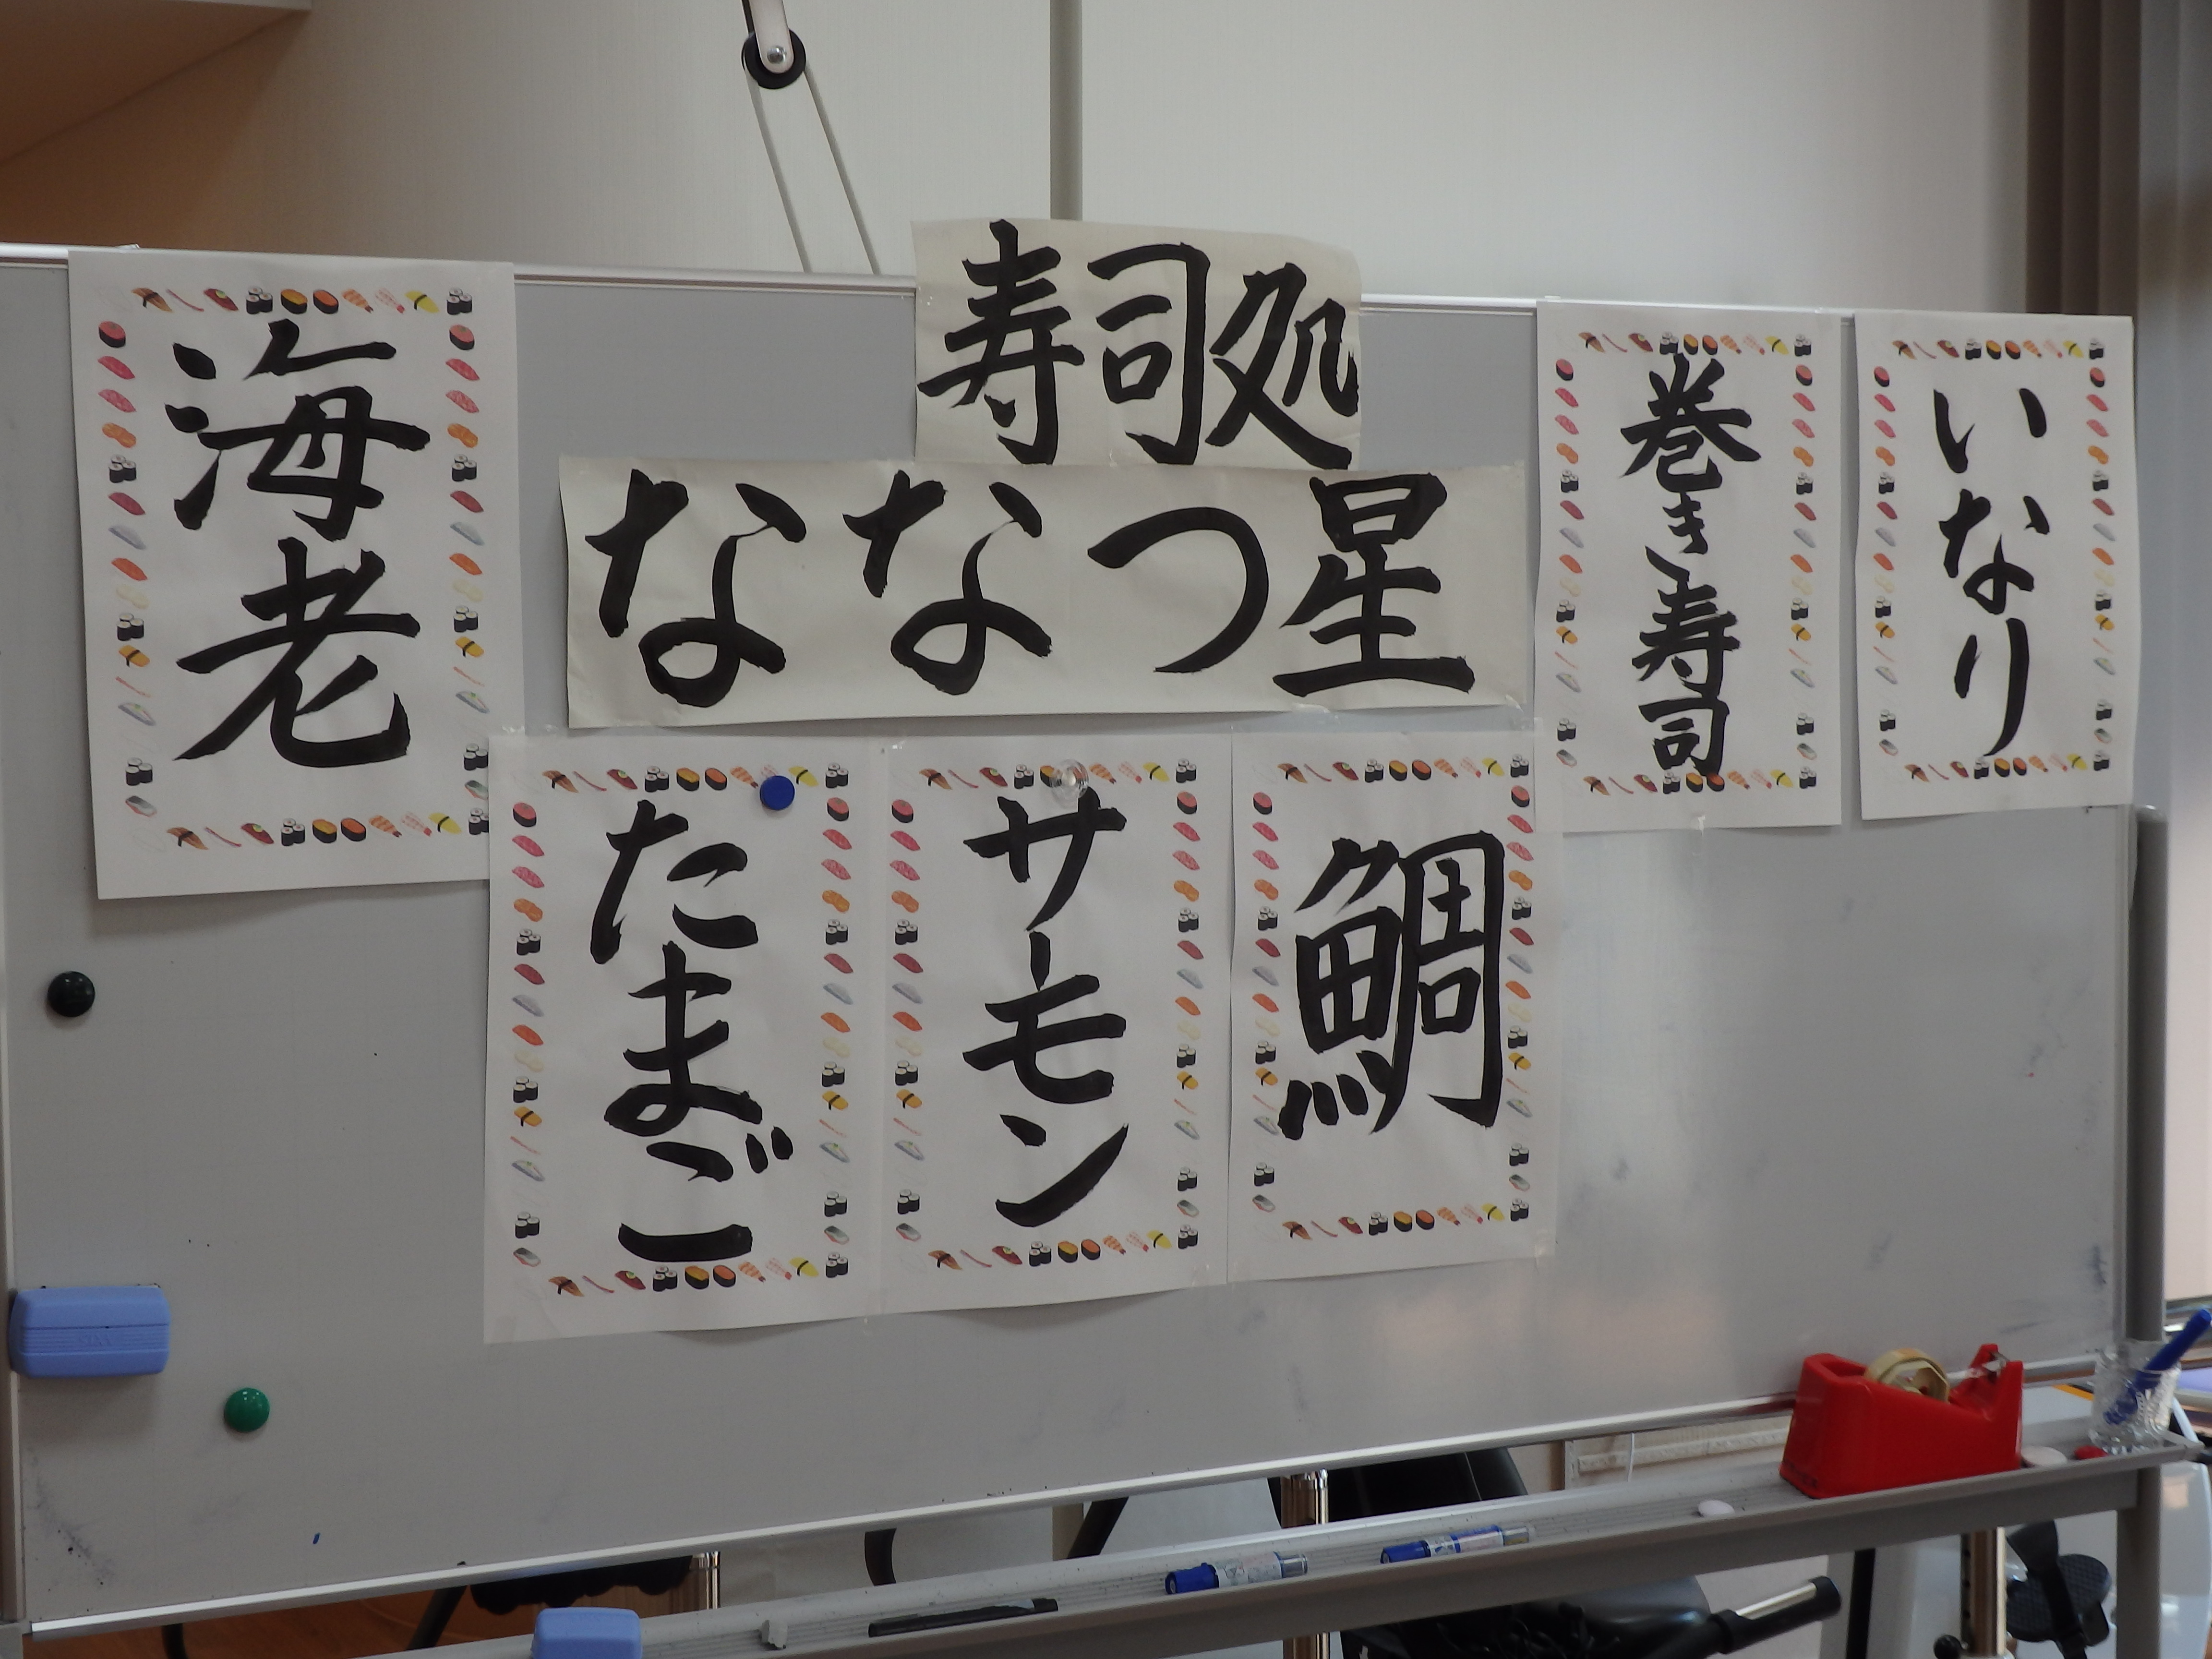 寿司処
ななつ星
海老
たまご
サーモン
鯛
巻き寿司
いなり